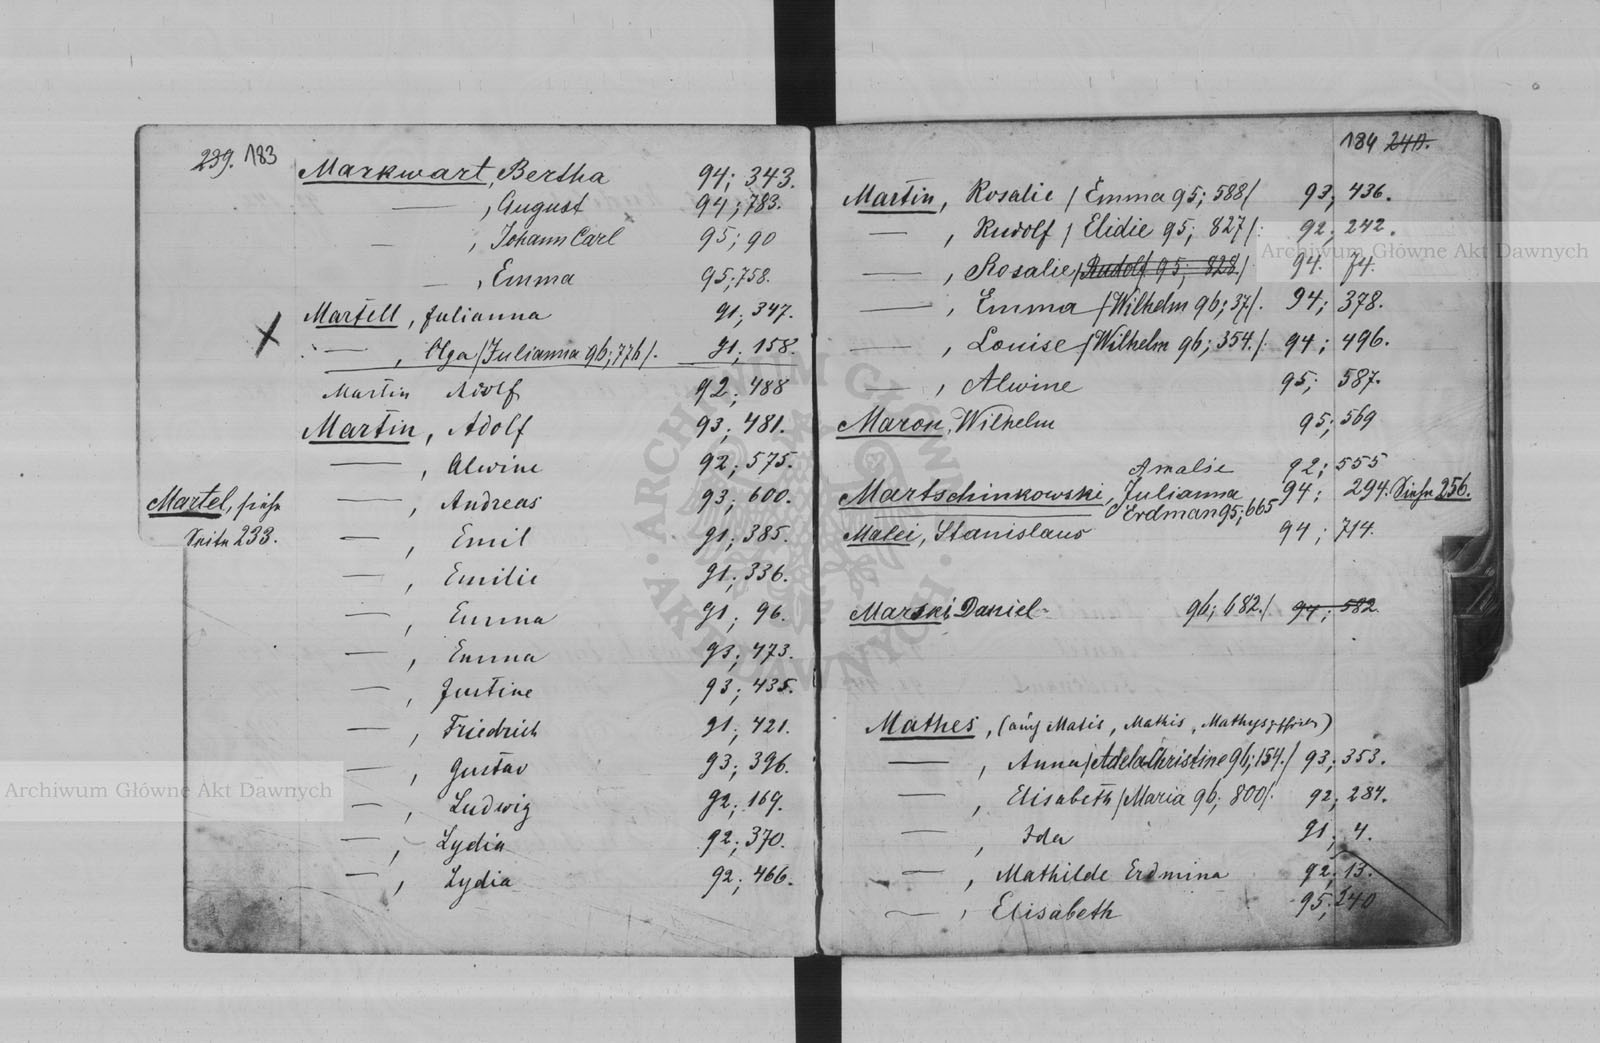 239. 183
Markwart, Bertha 94; 343.
—, August 94; 783.
—, Johann Carl 95; 90
—, Emma 95; 758.
Martell, Julianna 91; 347.
—, Olga /Julianna 96; 776/. 91; 158.
Martin Adolf 92; 488
Martin, Adolf 93; 481.
—, Alwine 92; 575.
Martel, siehe Seite 233.
—, Andreas 93; 600.
—, Emil 91; 385.
—, Emilie 91; 336.
—, Emma 91; 96.
—, Emma 93; 473.
—, Justine 93; 435.
—, Friedrich 91; 421.
—, Gustav 93; 396.
—, Ludwig 92; 169.
—, Lydia 92; 370.
—, Lydia 92; 466.
184 240.
Martin, Rosalie /Emma 95; 588/ 93; 436.
—, Rudolf /Elidie 95; 827/. 92; 242.
—, Rosalie /Rudolf 95; 828/ 94. 74.
—, Emma /Wilhelm 96; 37/. 94; 378.
—, Louise /Wilhelm 96; 354./. 94; 496.
—, Alwine 95; 587.
Maron, Wilhelm 95; 569
Amalie 92; 555
Martschinkowski, Julianna 94; 294. Siehe 256.
Erdman 95; 665
Malei, Stanislaus 94; 714.
Marski, Daniel 96; 682./ 94; 582.
Mathes, (auch Matis, Mathis, Mathys
—, Anna /Adela Christine 96; 154./ 93; 353.
—, Elisabeth /Maria 96; 800/. 92; 284.
—, Ida 91; 4.
—, Mathilde Erdmina 92; 13.
—, Elisabeth 95; 240
Archiwum Główne Akt Dawnych
Archiwum Główne Akt Dawnych
ARCHIWUM GŁÓWNE
AKT DAWNYCH